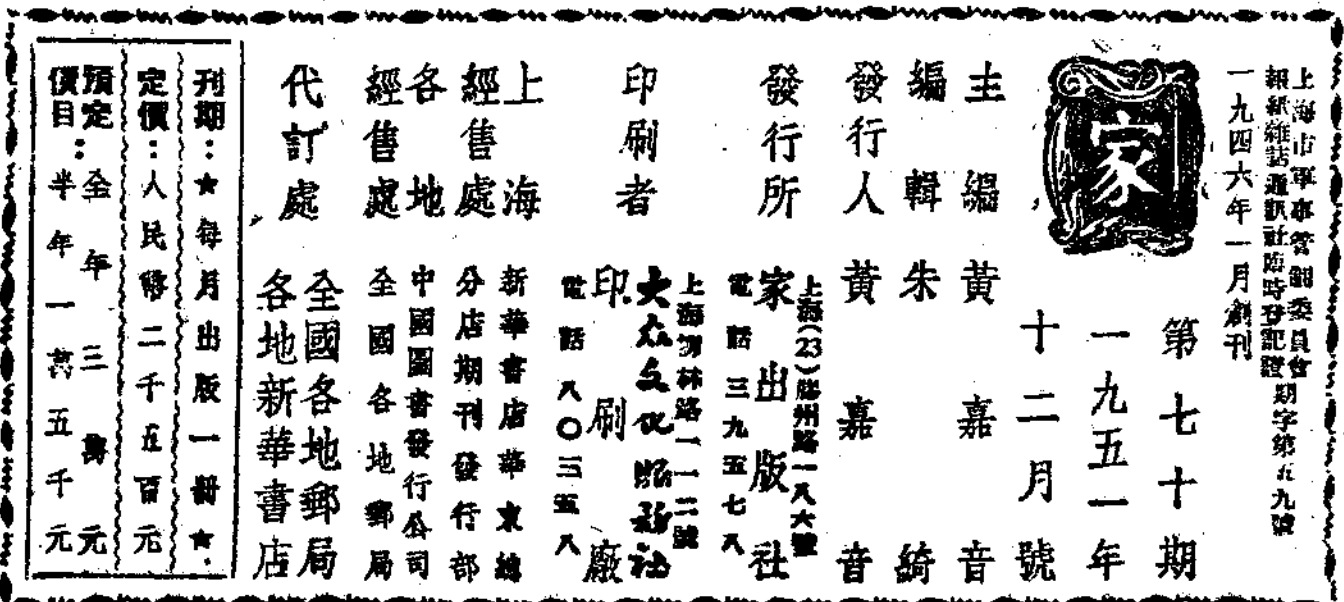 上海市軍事管制委員會
報紙雜誌通訊社臨時登記證期字第五九號
一九四六年一月創刊
家
第七十期
一九五一年
十二月號
主編 黃嘉音
編輯 朱綺
發行人 黃嘉音
發行所 家出版社
上海(23)膠州路一八六號
電話三九五七八
印刷者 大众文化服務社
印刷廠
上海林路一一二號
電話八〇三五八
上海經售處 新華書店華東總
分店期刊發行部
各地經售處 中國圖書發行公司
全國各地郵局
代訂處 全國各地郵局
各地新華書店
刊期：★每月出版一冊★
定價：人民幣二千五百元
預定價目：全年三萬元
半年一萬五千元